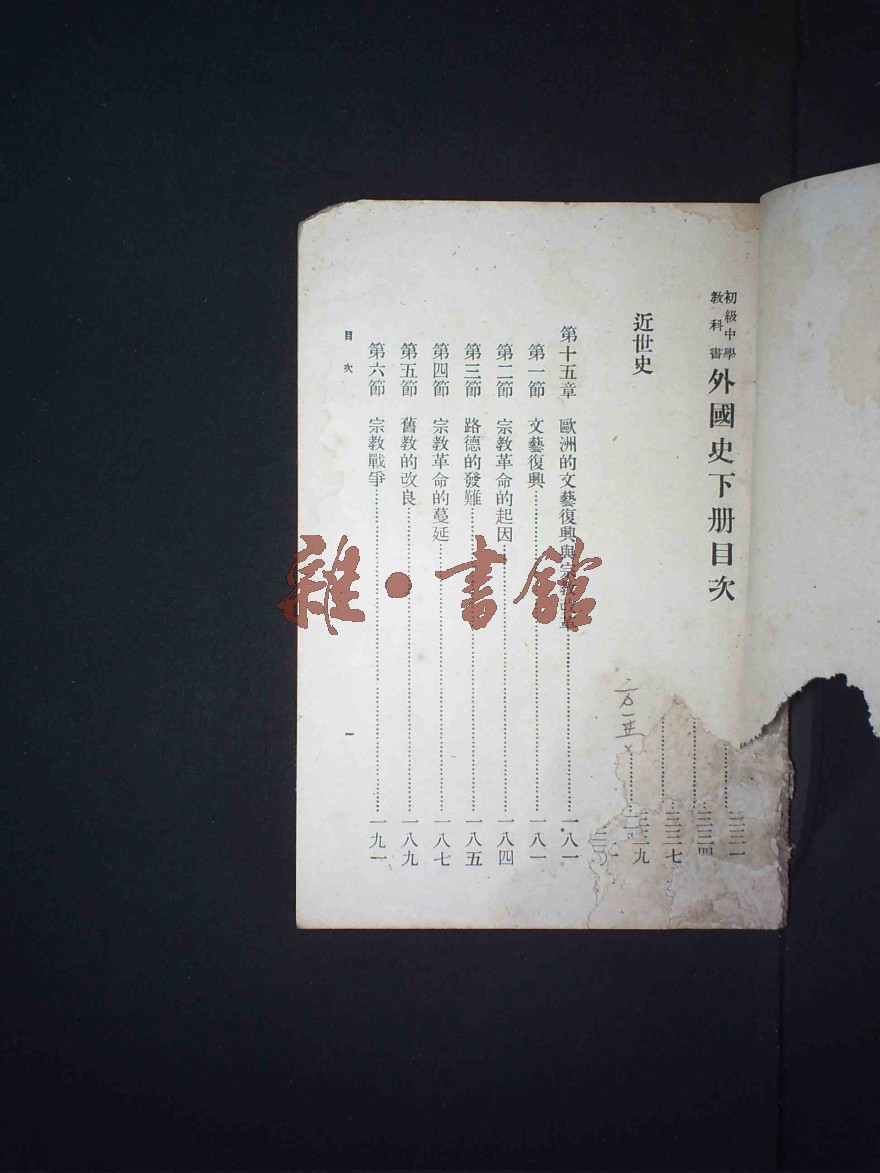 初級中學教科書 外國史下册目次
近世史
第十五章 歐洲的文藝復興與宗教改革……一八一
第一節 文藝復興……一八一
第二節 宗教革命的起因……一八四
第三節 路德的發難……一八五
第四節 宗教革命的蔓延……一八七
第五節 舊教的改良……一八九
第六節 宗教戰爭……一九一
目次
一
雜·書館